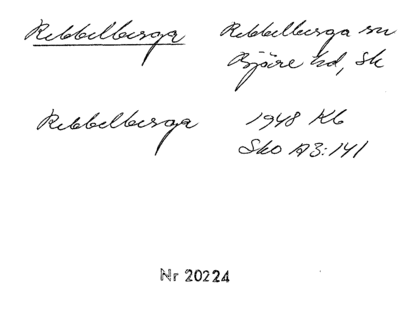 Rebbelberga Rebbelberga sn
Bjäre hd, Sk
Rebbelberga 1948 Kb
Sko A3:141
Nr 20224